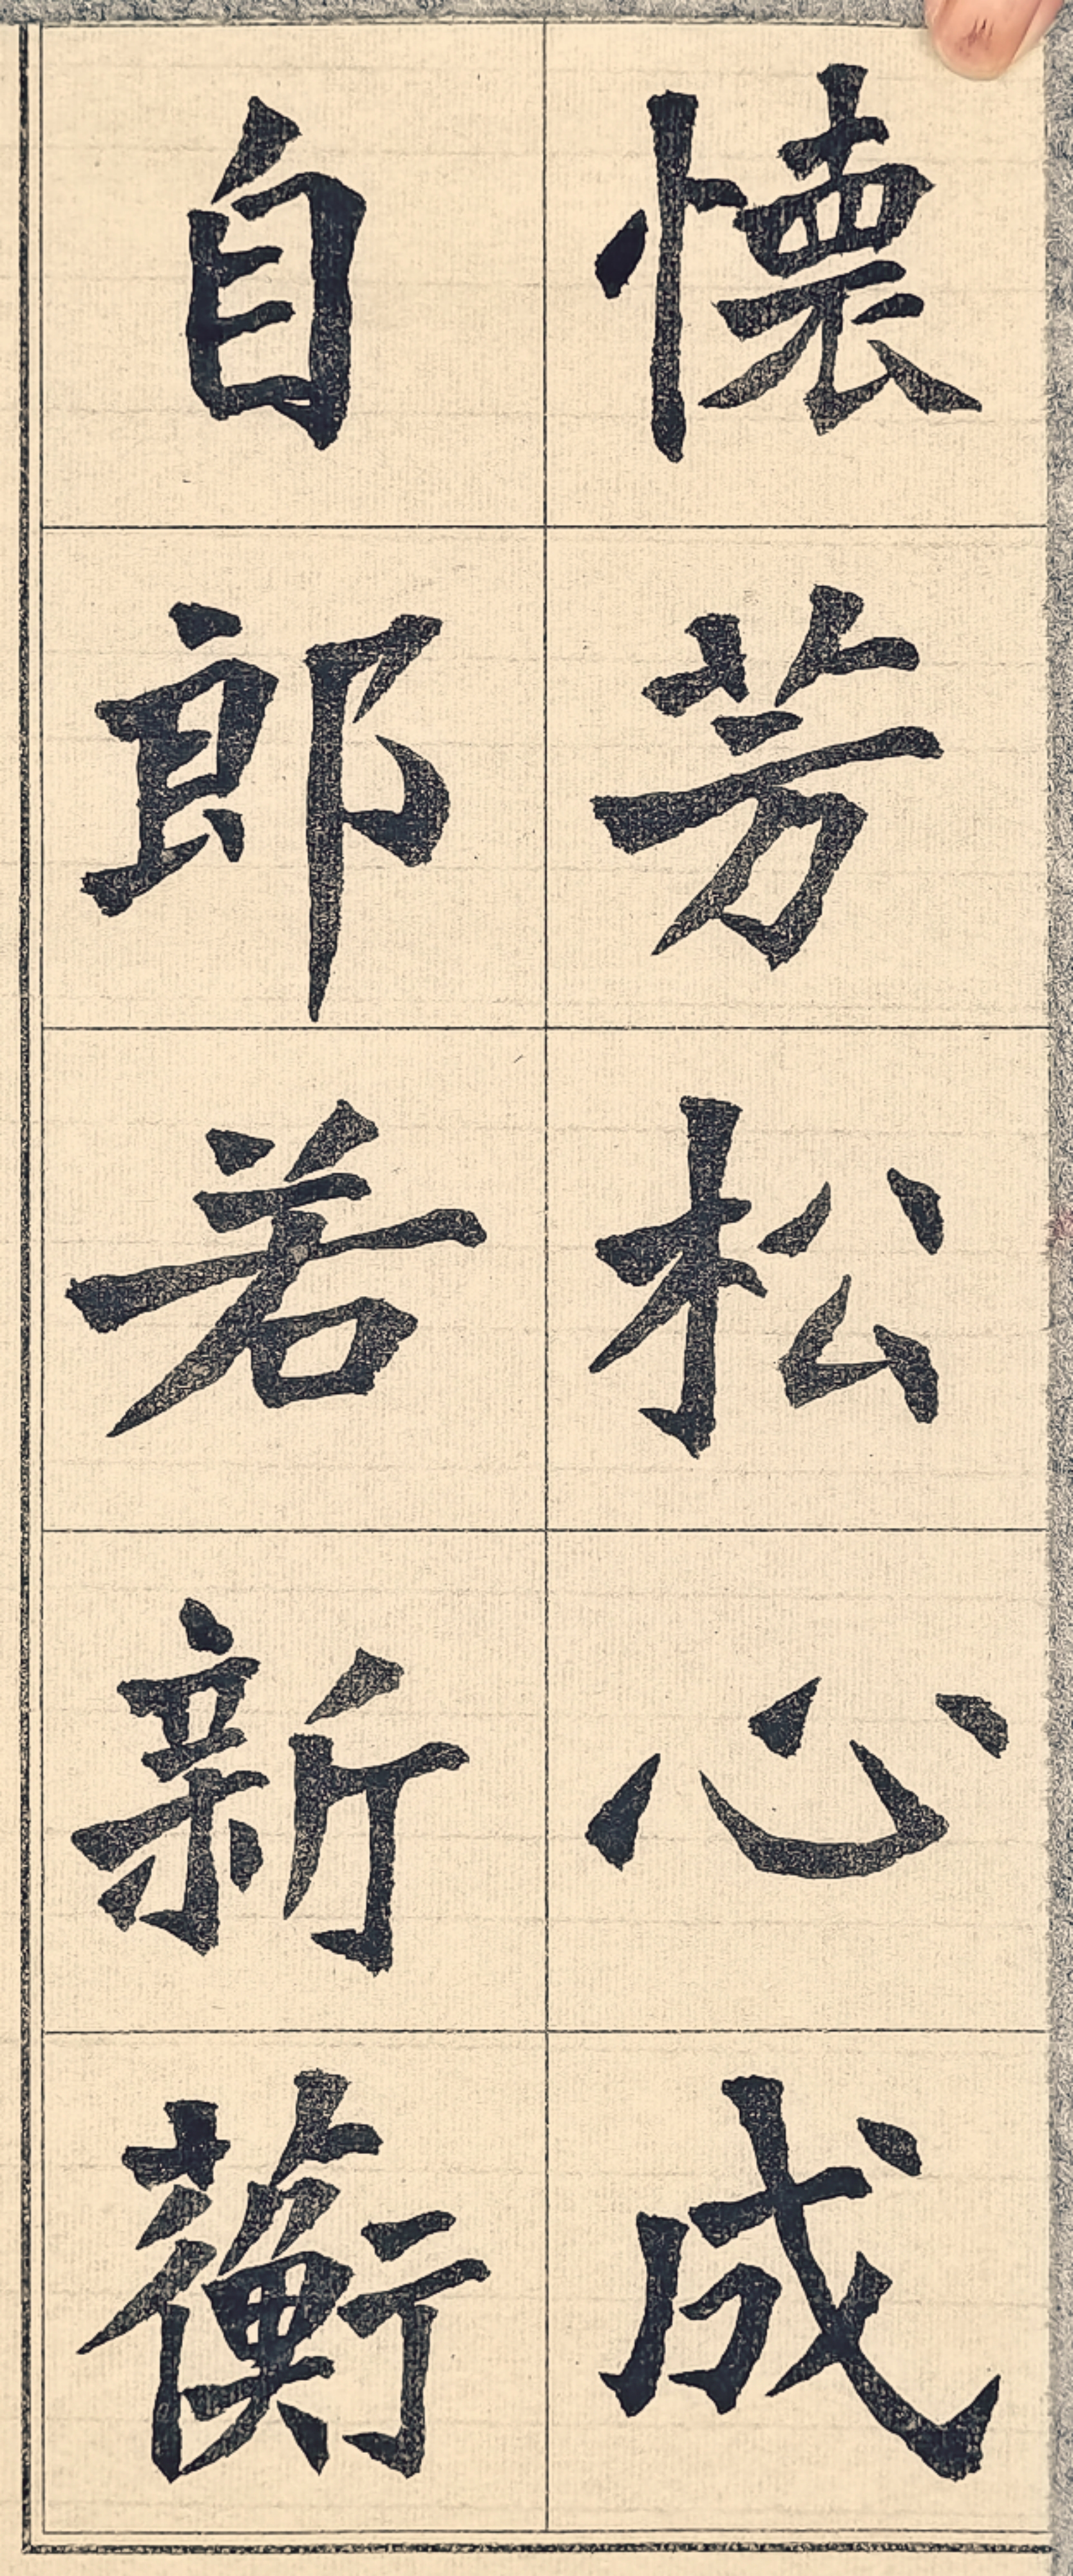 懐芳松心成
自郎若新蘅